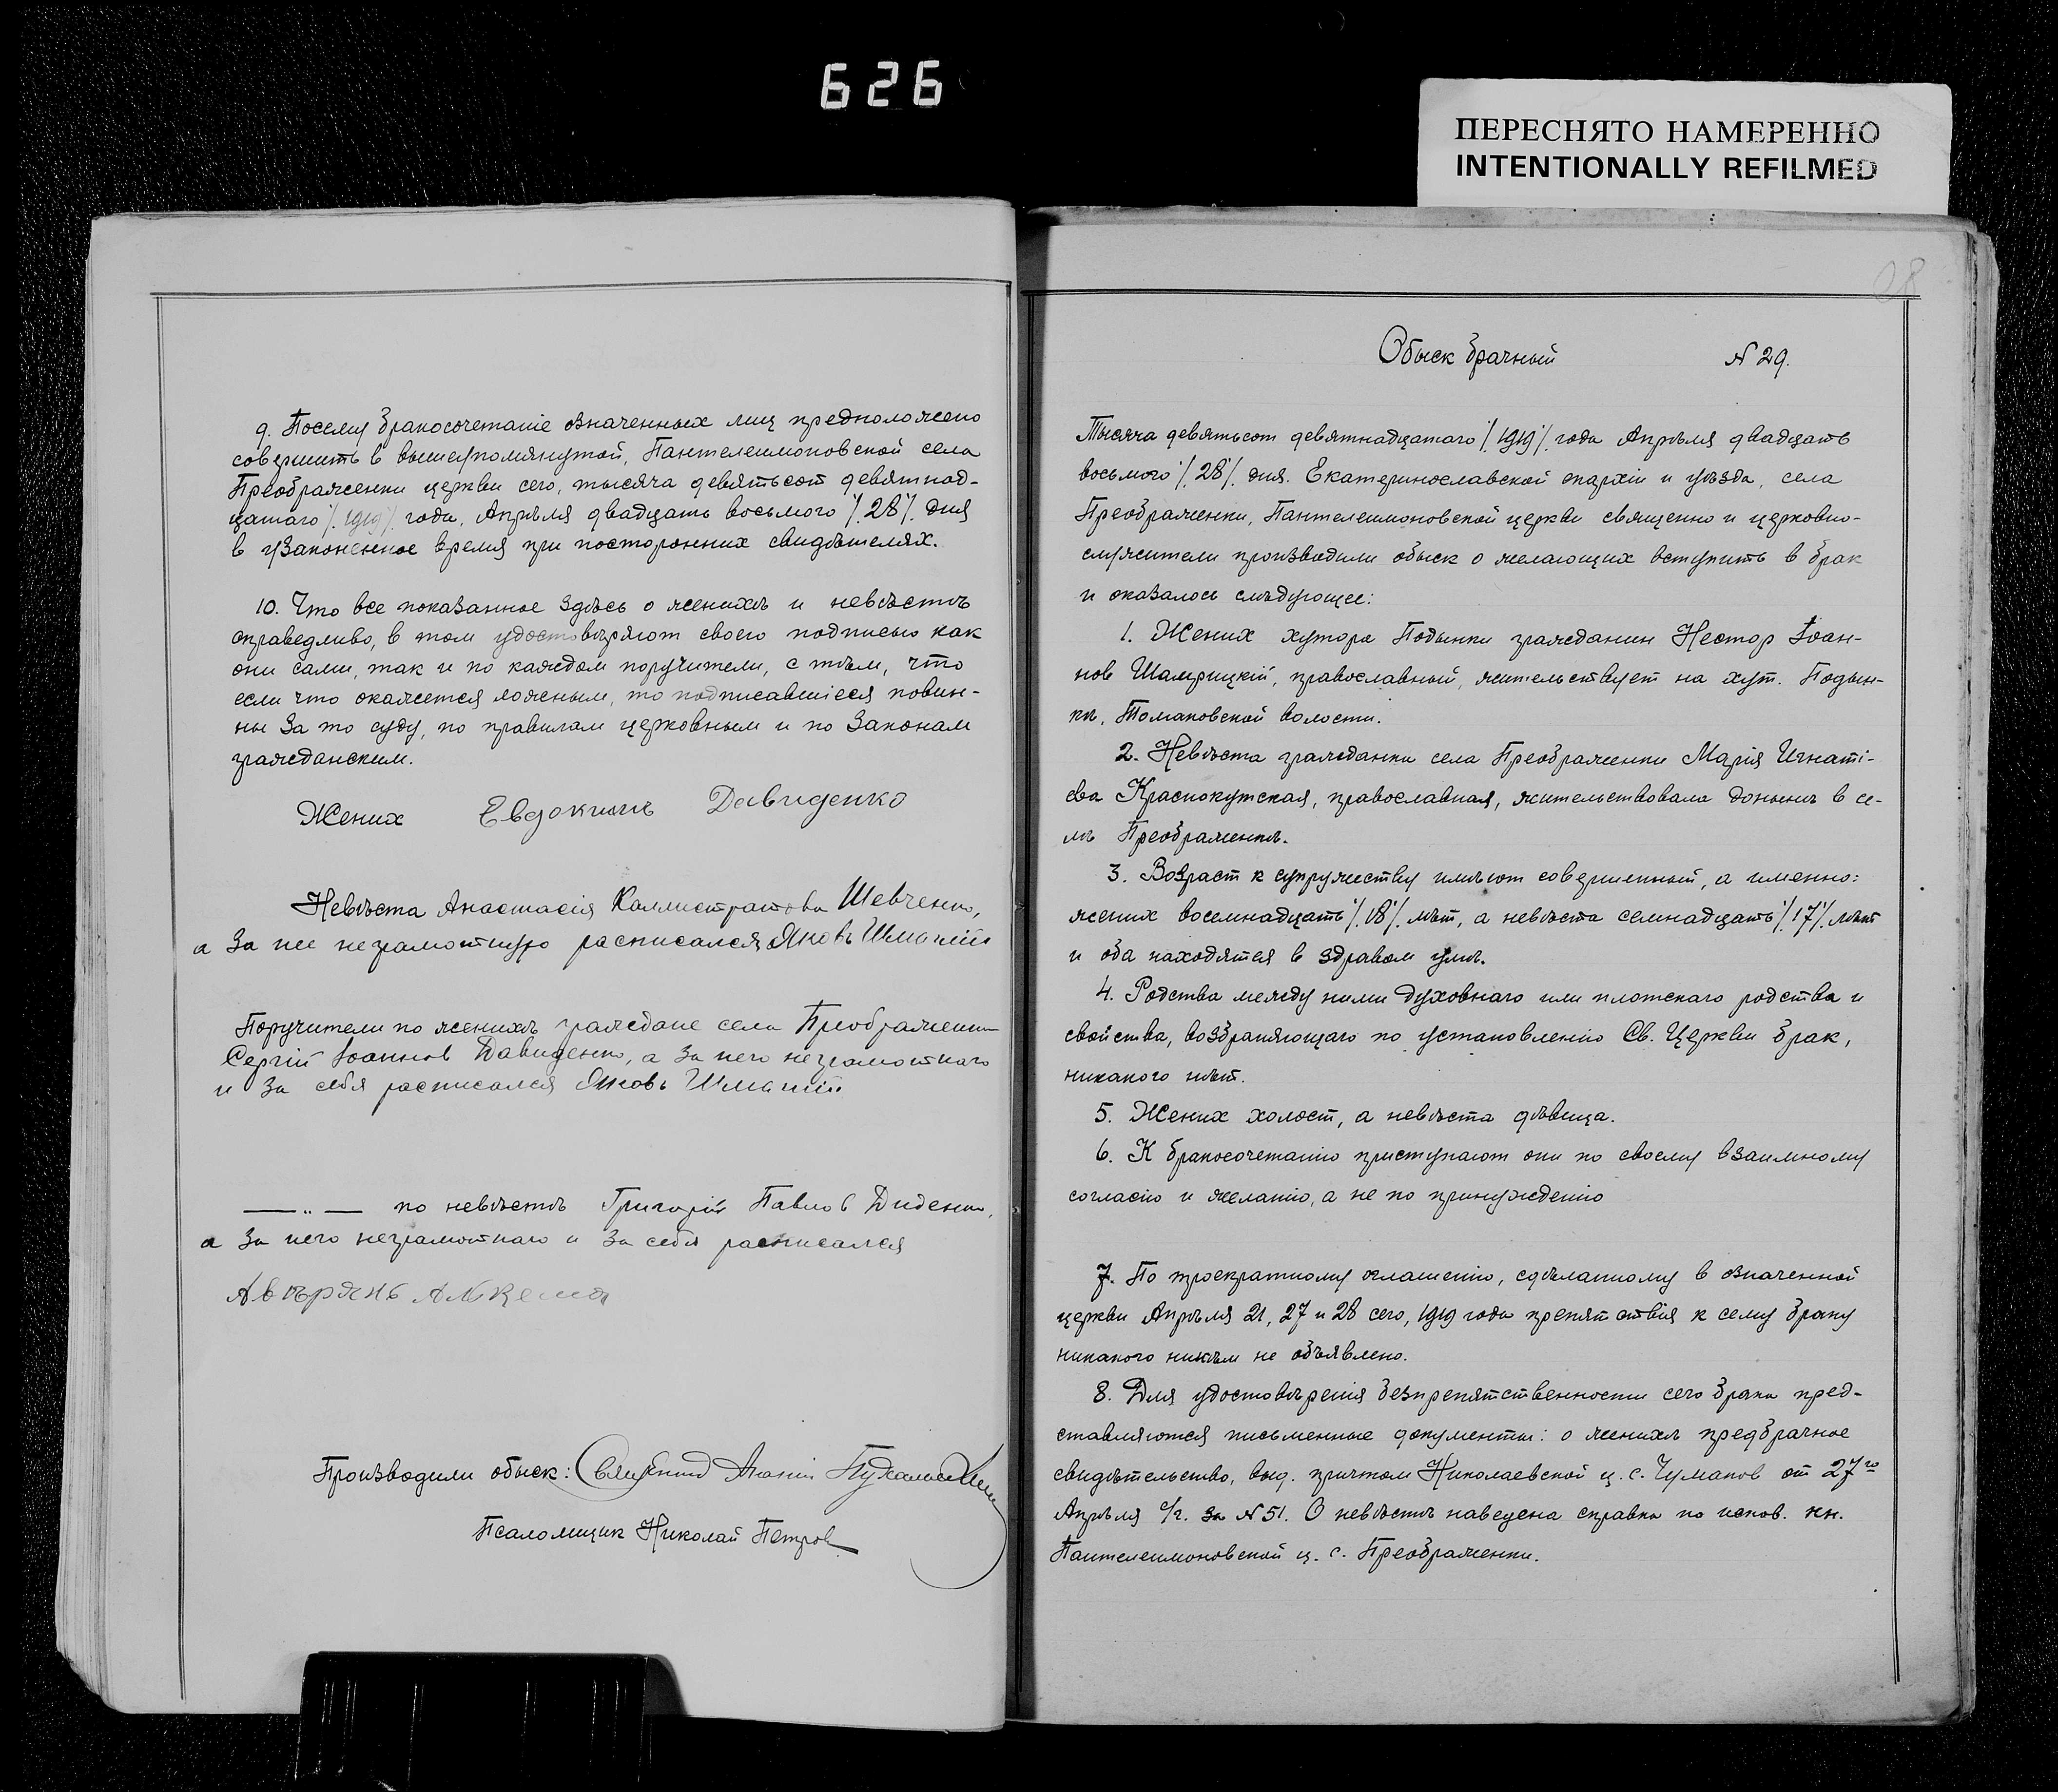 626
ПЕРЕСНЯТО НАМЕРЕННО
INTENTIONALLY REFILMED
9. Посему бракосочетаніе означенных лиц предположено
совершить в вышеупомянутой, Пантелеимоновской села
Преображенки церкви сего, тысяча девятьсот девятнад-
цатаго /1919/ года, Апрѣля двадцать восьмого /28/ дня
в узаконенное время при посторонних свидѣтелях.
10. Что все показанное здѣсь о женихѣ и невѣстѣ
справедливо, в том удостовѣряют своею подписью как
они сами, так и по каждом поручители, с тѣм, что
если что окажется ложным, то подписавшіеся повин-
ны за то суду, по правилам церковным и по законам
гражданским.
Жених Евдокимъ Давиденко
Невѣста Анастасія Каллистратова Шевченко,
а за нее неграмотную расписался Яковъ
Поручители по женихѣ граждане села Преображенки
Сергій Іоаннов Давиденко, а за него неграмотнаго
и за себя расписался Яковъ
—„— по невѣстѣ Григорій Павлов Диденко,
а за него неграмотнаго и за себя расписался
Производили обыск: Священник
Псаломщик Николай Петров
08
Обыск брачный N 29.
Тысяча девятьсот девятнадцатаго /1919/ года Апрѣля двадцать
восьмого /28/ дня. Екатеринославской епархіи и уѣзда, села
Преображенки, Пантелеимоновской церкви священно и церковно-
служители производили обыск о желающих вступить в брак
и оказалось слѣдующее:
1. Жених хутора Подынки гражданин Нестор Іоан-
нов Шамрицкій, православный, жительствует на хут. Подын-
кѣ, Томаковской волости.
2. Невѣста гражданка села Преображенки Марія Игнаті-
ева Краснокутская, православная, жительствовала донынѣ в се-
лѣ Преображенкѣ.
3. Возраст к супружеству имѣют совершенный, а именно:
жених восемнадцать /18/ лѣт, а невѣста семнадцать /17/ лѣт
и оба находятся в здравом умѣ.
4. Родства между ними духовнаго или плотскаго родства и
свойства, возбраняющаго по установленію Св. Церкви брак,
никакого нѣт.
5. Жених холост, а невѣста дѣвица.
6. К бракосочетанію приступают они по своему взаимному
согласію и желанію, а не по принужденію
7. По троекратному оглашенію, сдѣланному в означенной
церкви Апрѣля 21, 27 и 28 сего, 1919 года препятствія к сему браку
никакого никѣм не объявлено.
8. Для удостовѣренія безпрепятственности сего брака пред-
ставляются письменные документы: о женихѣ предбрачное
свидѣтельство, выд. причтом Николаевской ц. с. Чумаков от 27го
Апрѣля с/г. за N 51. О невѣстѣ наведена справка по испов. кн.
Пантелеимоновской ц. с. Преображенки.